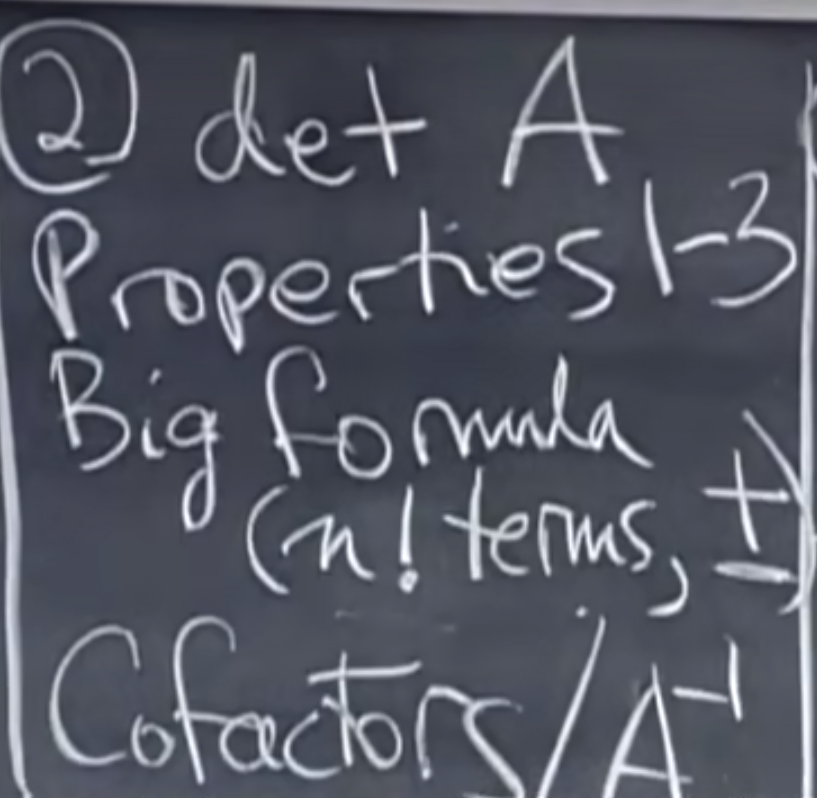 ② det A
Properties 1-3
Big formula
(n! terms, ±)
Cofactors/A⁻¹